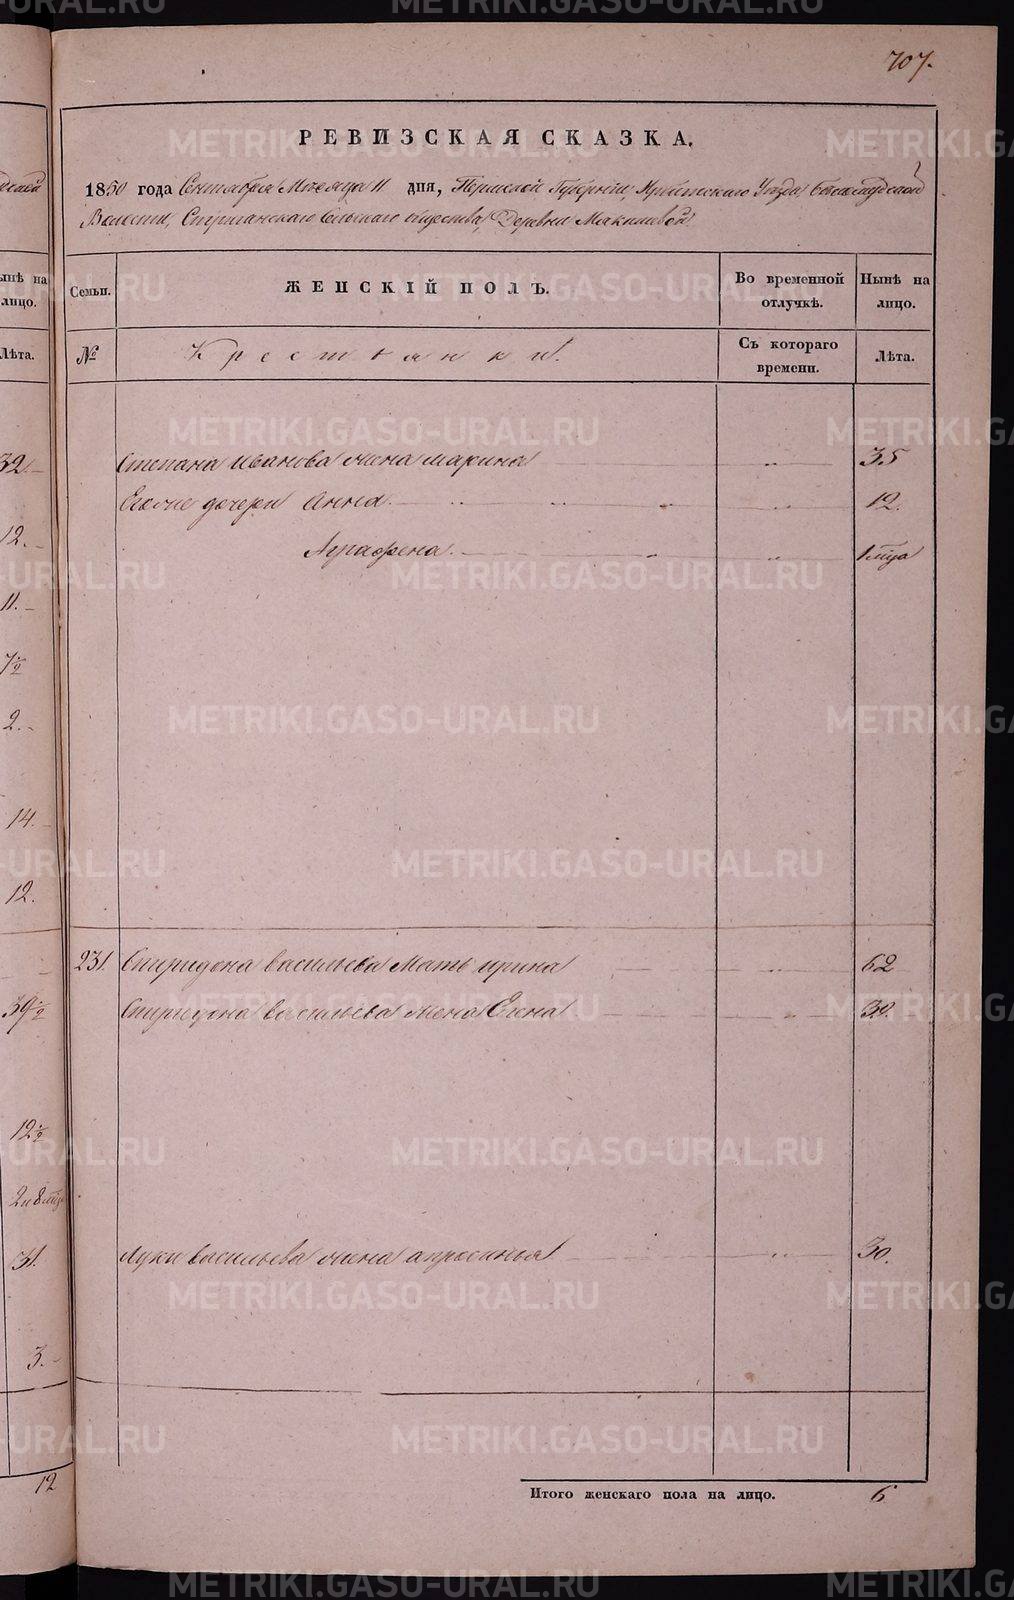 707.
РЕВИЗСКАЯ СКАЗКА.
1850 года Сентября Месяца 11 дня, Пермской Губернии, Уезда,
Волости, общества, Деревни
ынѣ на
лицо.
Лѣта.
Семьи.
ЖЕНСКІЙ ПОЛЪ.
Во временной
отлучкѣ.
Нынѣ на
лицо.
№
Крестьянки.
Съ котораго
времени.
Лѣта.
32
Степана Иванова жена Марина 35
Его же дочери Анна 12.
12.
Аграфена. 1 мца
11.
7½
2.
14.
12.
231. Спиридона Васильева Мать Ирина 62
39½
Спиридона Васильева жена Елена
12½
2 и 8 мцв
31.
Луки Васильева жена Апросинья 30.
3.
12
Итого женскаго пола на лицо. 6
METRIKI.GASO-URAL.RU